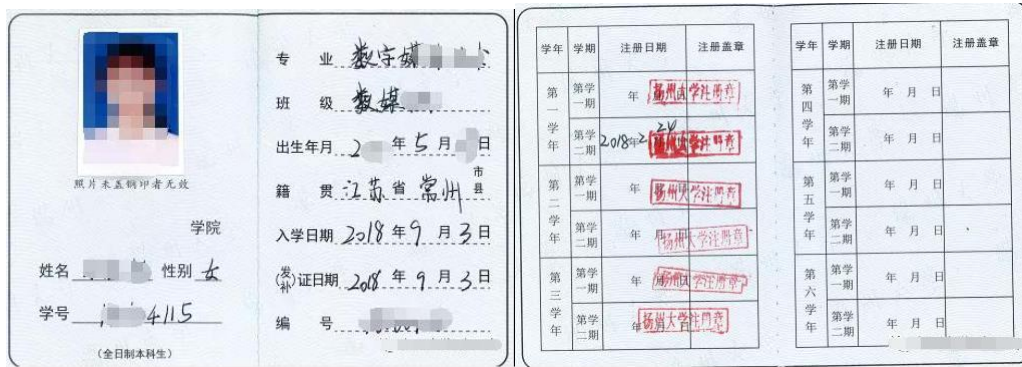 照片未盖钢印者无效
学院
姓名 性别 女
学号 4115
(全日制本科生)
专 业 数字媒
班 级 数媒
出生年月 2 年 5 月 日
籍 贯 江苏 省 常州 市县
入学日期 2018 年 9 月 3 日
(发补)证日期 2018 年 9 月 3 日
编 号
学年 学期 注册日期 注册盖章
第一学年 第学一期 年 扬州大学注册章
第学二期 2018年2 24
第二学年 第学一期 年 扬州大学注册章
第学二期 年 月 扬州大学注册章
第三学年 第学一期 年 扬州大学注册章
第学二期 年 扬州大学注册章
学年 学期 注册日期 注册盖章
第四学年 第学一期 年 月 日
第学二期 年 月 日
第五学年 第学一期 年 月 日
第学二期 年 月 日
第六学年 第学一期 年 月 日
第学二期 年 月 日